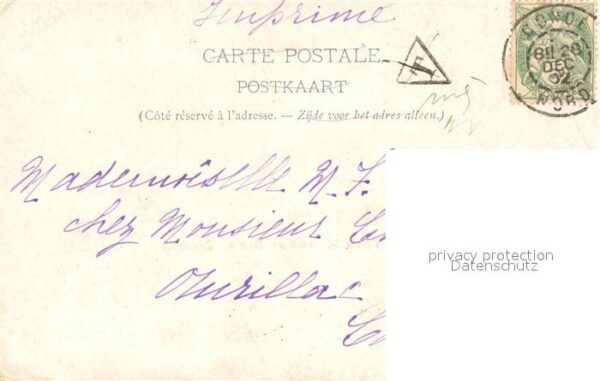 Imprimé
CARTE POSTALE
POSTKAART
(Côté réservé à l'adresse. — Zijde voor het adres alleen.)
T
8H 28
DEC
02
NORD
Mademoiselle M. F.
chez Monsieur
Aurillac
privacy protection
Datenschutz